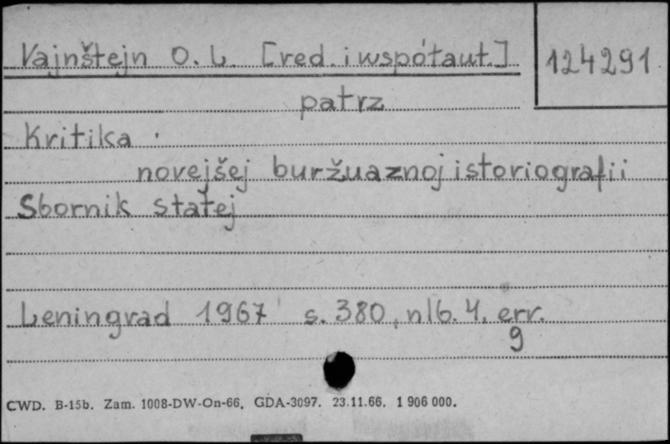 Vajnštejn O. L. [red. i wspótaut.]
124291
patrz
Kritika
novejšej buržuaznoj istoriografii
Sbornik statej
Leningrad 1967 s. 380, nlb. 4. err.
9
CWD. B-15b. Zam. 1008-DW-On-66. GDA-3097. 23.11.66. 1 906 000.